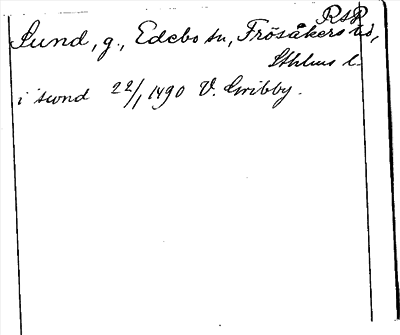 RSP
Sund, g., Edebo sn, Frösåkers hd,
Sthlms l.
i swnd 22/1 1490 V. Gribby.